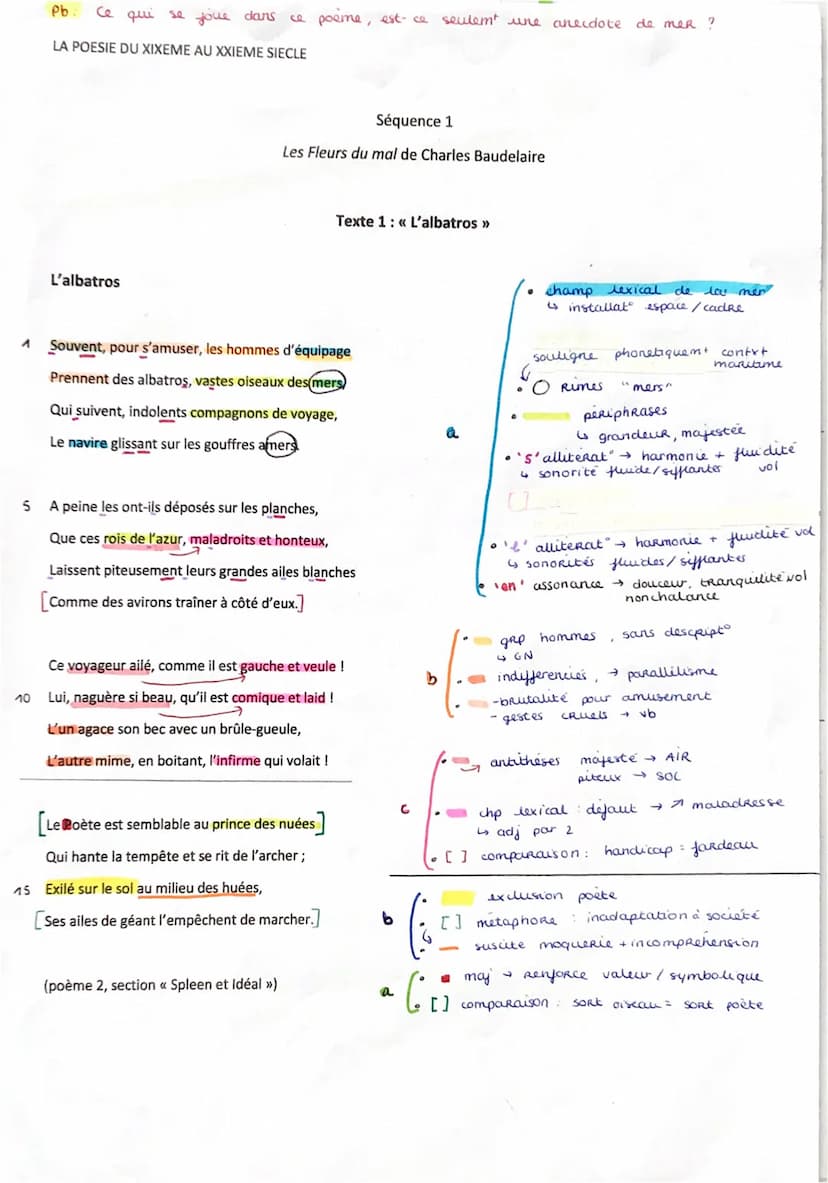 Pb : Ce qui se joue dans ce poème, est-ce seulemt une anecdote de mer ?
LA POESIE DU XIXEME AU XXIEME SIECLE
Séquence 1
Les Fleurs du mal de Charles Baudelaire
Texte 1 : « L'albatros »
L'albatros
1 Souvent, pour s'amuser, les hommes d'équipage
Prennent des albatros, vastes oiseaux des mers,
Qui suivent, indolents compagnons de voyage,
Le navire glissant sur les gouffres amers.
5 A peine les ont-ils déposés sur les planches,
Que ces rois de l'azur, maladroits et honteux,
Laissent piteusement leurs grandes ailes blanches
[Comme des avirons traîner à côté d'eux.]
Ce voyageur ailé, comme il est gauche et veule !
10 Lui, naguère si beau, qu'il est comique et laid !
L'un agace son bec avec un brûle-gueule,
L'autre mime, en boitant, l'infirme qui volait !
[Le Poète est semblable au prince des nuées]
Qui hante la tempête et se rit de l'archer ;
15 Exilé sur le sol au milieu des huées,
[Ses ailes de géant l'empêchent de marcher.]
(poème 2, section « Spleen et Idéal »)
a
• champ lexical de la mer
↳ installat° espace / cadre
souligne phonetiquemt contxt
maritime
• O Rimes "mers"
• périphrases
↳ grandeur, majestée
• 's' allitérat° → harmonie + fluidité
vol
↳ sonorité fluide/sifflantes
[ ]
• 'l' alliterat° → harmonie + fluidité vol
↳ sonorités fluides / sifflantes
• 'en' assonance → douceur, tranquilité vol
nonchalance
b
• grp hommes, sans descript°
↳ GN
• indifferenciés, → parallélisme
• - brutalité pour amusement
- gestes cruels → vb
c
• antithéses majesté → AIR
piteux → SOL
• chp lexical : défaut → ↗ maladresse
↳ adj par 2
• [ ] comparaison : handicap = fardeau
b
• exclusion poète
• [ ] métaphore : inadaptation à société
↳ - suscite moquerie + incompréhension
a
• maj → renforce valeur / symbolique
• [ ] comparaison : sort oiseau = sort poète